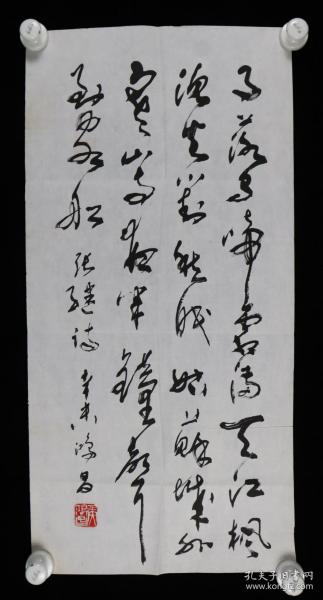 月落乌啼霜满天江枫
渔火对愁眠姑苏城外
寒山寺夜半钟声
到客船 张继诗 辛未 鸿昌
孔夫子旧书网
www.kongfz.com